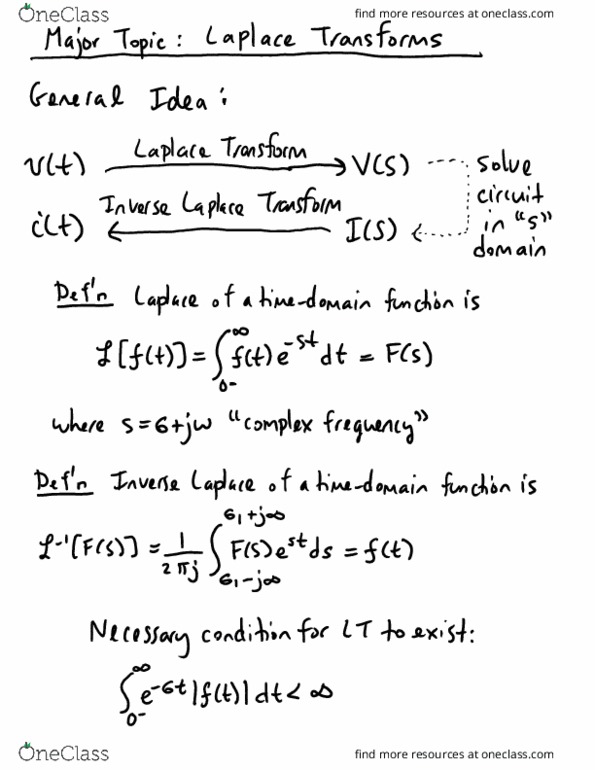 OneClass find more resources at oneclass.com
Major Topic: Laplace Transforms
General Idea:
v(t) Laplace Transform V(s) solve
circuit
i(t) Inverse Laplace Transform I(s) in "s"
domain
Def'n Laplace of a time-domain function is
ℒ[f(t)] = ∫₀₋^∞ f(t)e^-st dt = F(s)
where s=σ+jω "complex frequency"
Def'n Inverse Laplace of a time-domain function is
ℒ^-1[F(s)] = 1/2πj ∫_σ₁-j∞^σ₁+j∞ F(s)e^st ds = f(t)
Necessary condition for LT to exist:
∫₀₋^∞ e^-σt |f(t)| dt < ∞
OneClass find more resources at oneclass.com